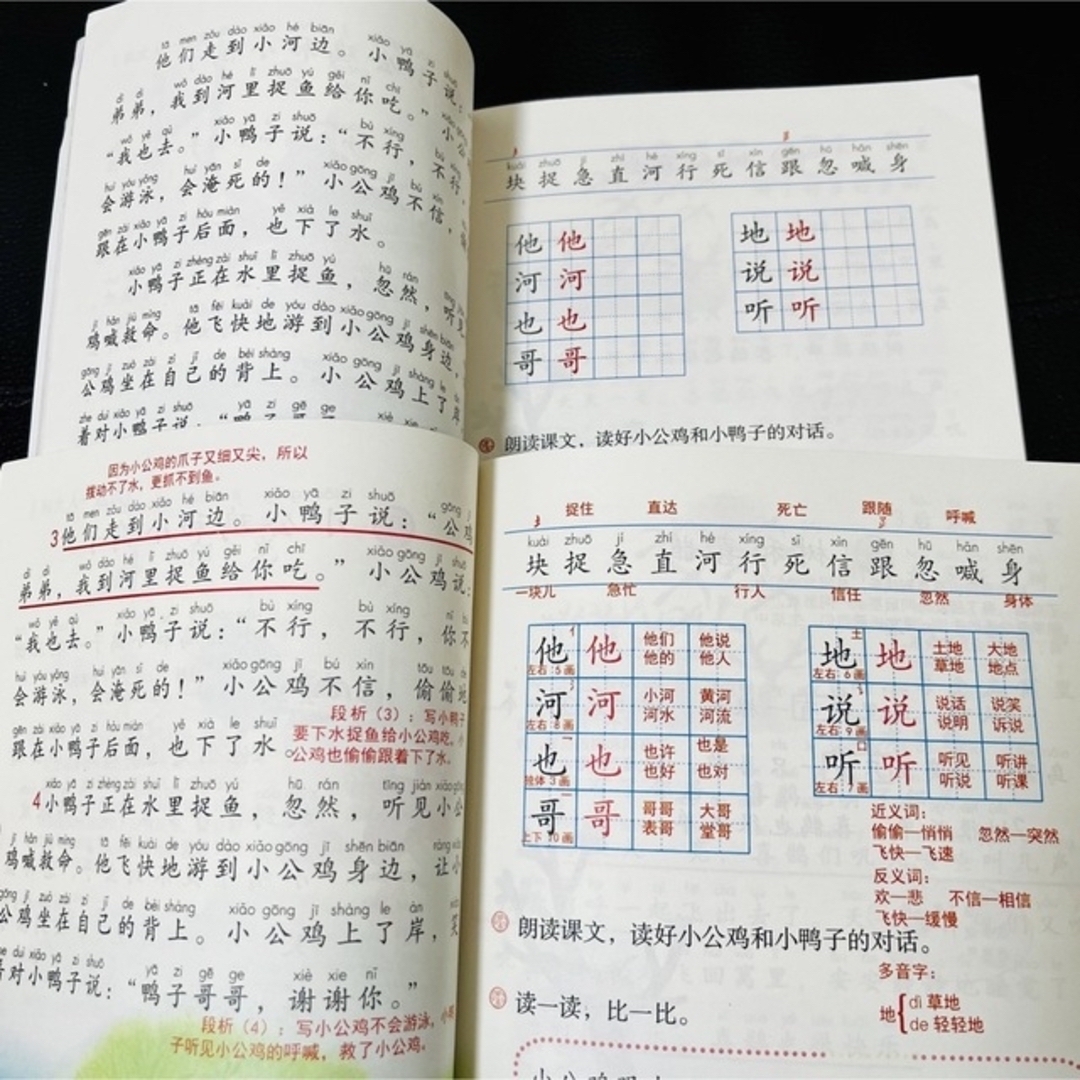 tā men zǒu dào xiǎo hé biān xiǎo yā
他们走到小河边。小鸭子说：
dì di wǒ dào hé lǐ zhuō yú gěi nǐ chī
弟弟，我到河里捉鱼给你吃。”小公
wǒ yě qù xiǎo yā zi shuō bù xíng
“我也去。”小鸭子说：“不行，不行，
huì yóu yǒng huì yān sǐ de xiǎo gōng jī bú xìn
会游泳，会淹死的！”小公鸡不信，
gēn zài xiǎo yā zi hòu miàn yě xià le shuǐ
跟在小鸭子后面，也下了水。
xiǎo yā zi zhèng zài shuǐ lǐ zhuō yú hū rán
小鸭子正在水里捉鱼，忽然，听见
jī hǎn jiù mìng tā fēi kuài de yóu dào xiǎo gōng jī shēn biān
鸡喊救命。他飞快地游到小公鸡身边，
gōng jī zuò zài zì jǐ de bèi shàng xiǎo gōng jī shàng le
公鸡坐在自己的背上。小公鸡上了岸
zhe duì xiǎo yā zi shuō yā zi gē ge xiè xie
着对小鸭子说：“鸭子哥哥，
kuài zhuō jí zhí hé xíng sǐ xìn gēn hū hǎn shēn
块 捉 急 直 河 行 死 信 跟 忽 喊 身
他 他
河 河
也 也
哥 哥
地 地
说 说
听 听
朗读课文，读好小公鸡和小鸭子的对话。
因为小公鸡的爪子又细又尖，所以
拨动不了水，更抓不到鱼。
tā men zǒu dào xiǎo hé biān xiǎo yā zi shuō gōng
3他们走到小河边。小鸭子说：“公鸡
dì di wǒ dào hé lǐ zhuō yú gěi nǐ chī xiǎo gōng jī shuō
弟弟，我到河里捉鱼给你吃。”小公鸡说：
wǒ yě qù xiǎo yā zi shuō bù xíng bù xíng nǐ bù
“我也去。”小鸭子说：“不行，不行，你不
huì yóu yǒng huì yān sǐ de xiǎo gōng jī bú xìn tōu tōu de
会游泳，会淹死的！”小公鸡不信，偷偷地
段析（3）：写小鸭子
gēn zài xiǎo yā zi hòu miàn yě xià le shuǐ
跟在小鸭子后面，也下了水。
要下水捉鱼给小公鸡吃，小
公鸡也偷偷跟着下了水。
xiǎo yā zi zhèng zài shuǐ lǐ zhuō yú hū rán tīng jiàn xiǎo gōng
4小鸭子正在水里捉鱼，忽然，听见小公
jī hǎn jiù mìng tā fēi kuài de yóu dào xiǎo gōng jī shēn biān ràng xiǎo
鸡喊救命。他飞快地游到小公鸡身边，让小
gōng jī zuò zài zì jǐ de bèi shàng xiǎo gōng jī shàng le àn xiào
公鸡坐在自己的背上。小公鸡上了岸，笑
zhe duì xiǎo yā zi shuō yā zi gē ge xiè xie nǐ
着对小鸭子说：“鸭子哥哥，谢谢你。”
段析（4）：写小公鸡不会游泳，小鸭
子听见小公鸡的呼喊，救了小公鸡。
捉住 直达 死亡 跟随 呼喊
kuài zhuō jí zhí hé xíng sǐ xìn gēn hū hǎn shēn
块 捉 急 直 河 行 死 信 跟 忽 喊 身
一块儿 急忙 行人 信任 忽然 身体
他 他 他们 他说
左右：5画 他的 他人
河 河 小河 黄河
左右：8画 河水 河流
也 也 也许 也是
独体 3画 也好 也对
哥 哥 哥哥 大哥
上下 10画 表哥 堂哥
土
地 地 土地 大地
左右：6画 草地 地点
讠
说 说 说话 说笑
左右：9画 说明 诉说
口
听 听 听见 听讲
左右：7画 听说 听课
近义词：
偷偷—悄悄 忽然—突然
飞快—飞速
反义词：
欢—悲 不信—相信
飞快—缓慢
朗读课文，读好小公鸡和小鸭子的对话。
多音字：
地 dì 草地
de 轻轻地
读一读，比一比。